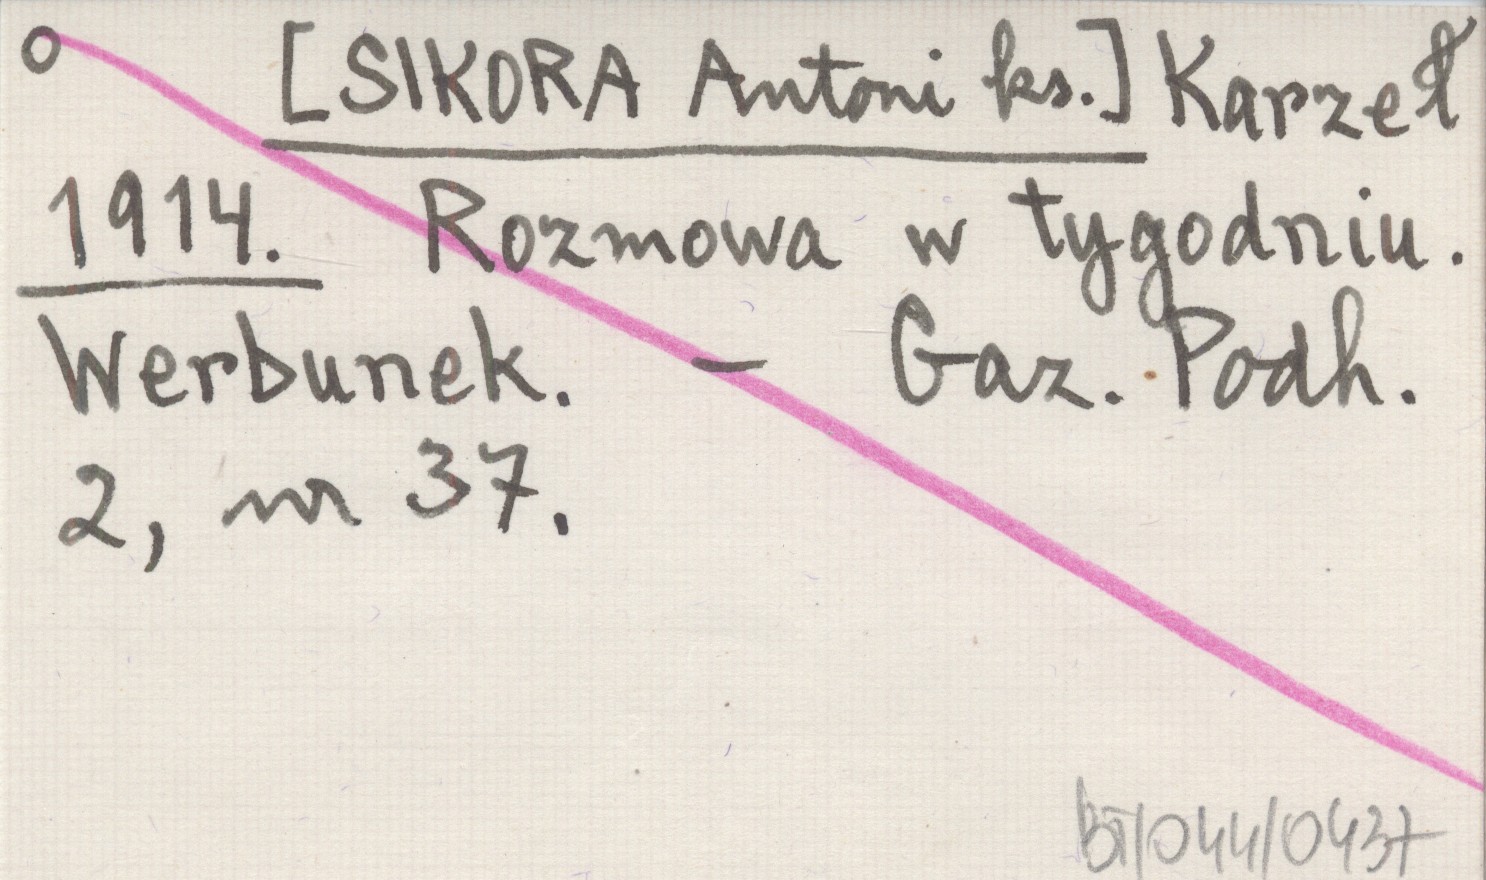 o [SIKORA Antoni ks.] Karzeł
1914. Rozmowa w tygodniu.
Werbunek. – Gaz. Podh.
2, nr 37.
BT/044/0437